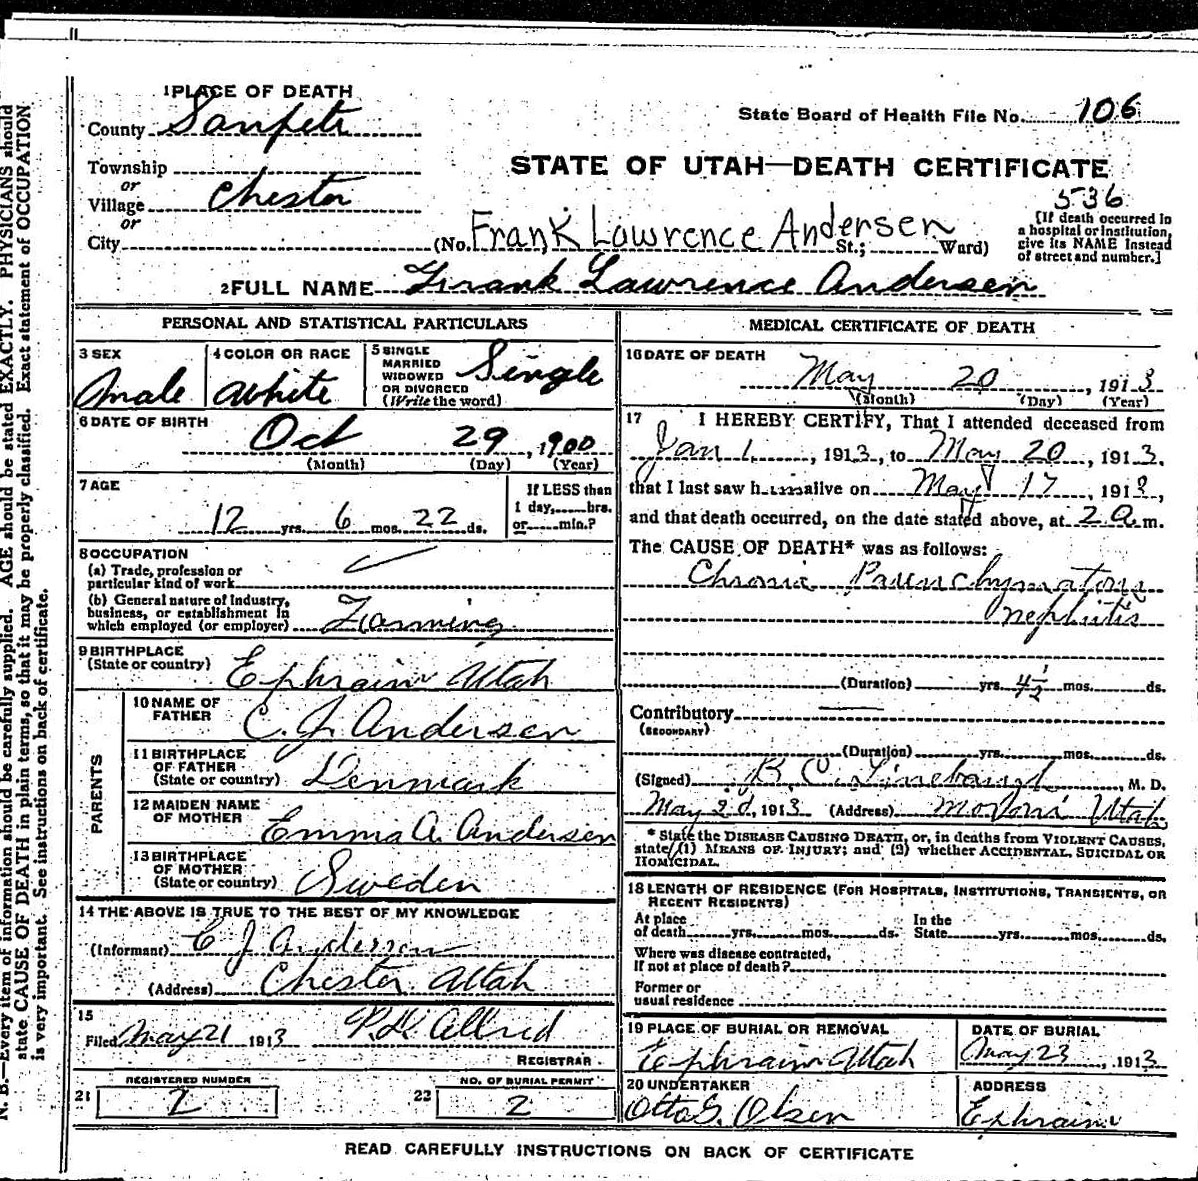 1 PLACE OF DEATH
County Sanpete
State Board of Health File No. 106
Township
STATE OF UTAH—DEATH CERTIFICATE
or
Village Chester
536
or
City (No. Frank Lawrence Andersen St.; Ward)
[If death occurred in
a hospital or institution,
give its NAME instead
of street and number.]
2 FULL NAME Frank Lawrence Andersen
PERSONAL AND STATISTICAL PARTICULARS
3 SEX
male
4 COLOR OR RACE
White
5 SINGLE
MARRIED
WIDOWED
OR DIVORCED
(Write the word)
Single
6 DATE OF BIRTH
Oct 29, 1900
(Month) (Day) (Year)
7 AGE
12 yrs. 6 mos. 22 ds.
If LESS than
1 day, hrs.
or min.?
8 OCCUPATION
(a) Trade, profession or
particular kind of work
(b) General nature of Industry,
business, or establishment in
which employed (or employer) Farming
9 BIRTHPLACE
(State or country) Ephraim Utah
PARENTS
10 NAME OF
FATHER C. J. Andersen
11 BIRTHPLACE
OF FATHER
(State or country) Denmark
12 MAIDEN NAME
OF MOTHER Emma A. Andersen
13 BIRTHPLACE
OF MOTHER
(State or country) Sweden
14 THE ABOVE IS TRUE TO THE BEST OF MY KNOWLEDGE
(Informant) C J Andersen
(Address) Chester Utah
15
Filed May 21 1913 P. H. Allred
REGISTRAR
21 REGISTERED NUMBER
2
22 NO. OF BURIAL PERMIT
2
MEDICAL CERTIFICATE OF DEATH
16 DATE OF DEATH
May 20, 1913
(Month) (Day) (Year)
17 I HEREBY CERTIFY, That I attended deceased from
Jan 1, 1913, to May 20, 1913.
that I last saw him alive on May 17, 1913,
and that death occurred, on the date stated above, at 2 a.m.
The CAUSE OF DEATH* was as follows:
Chronic Parenchymatous
nephritis
(Duration) yrs. 4½ mos. ds.
Contributory
(SECONDARY)
(Duration) yrs. mos. ds.
(Signed) B. C. Linebaugh, M. D.
May 2d, 1913 (Address) Moroni Utah
* State the DISEASE CAUSING DEATH, or, in deaths from VIOLENT CAUSES,
state (1) MEANS OF INJURY; and (2) whether ACCIDENTAL, SUICIDAL OR
HOMICIDAL.
18 LENGTH OF RESIDENCE (FOR HOSPITALS, INSTITUTIONS, TRANSIENTS, OR
RECENT RESIDENTS)
At place
of death yrs. mos. ds.
In the
State yrs. mos. ds.
Where was disease contracted,
If not at place of death?
Former or
usual residence
19 PLACE OF BURIAL OR REMOVAL
Ephraim Utah
DATE OF BURIAL
May 23, 1913
20 UNDERTAKER
Otto G. Olsen
ADDRESS
Ephraim
READ CAREFULLY INSTRUCTIONS ON BACK OF CERTIFICATE
N. B.—Every item of information should be carefully supplied. AGE should be stated EXACTLY. PHYSICIANS should
state CAUSE OF DEATH in plain terms, so that it may be properly classified. Exact statement of OCCUPATION
is very important. See instructions on back of certificate.